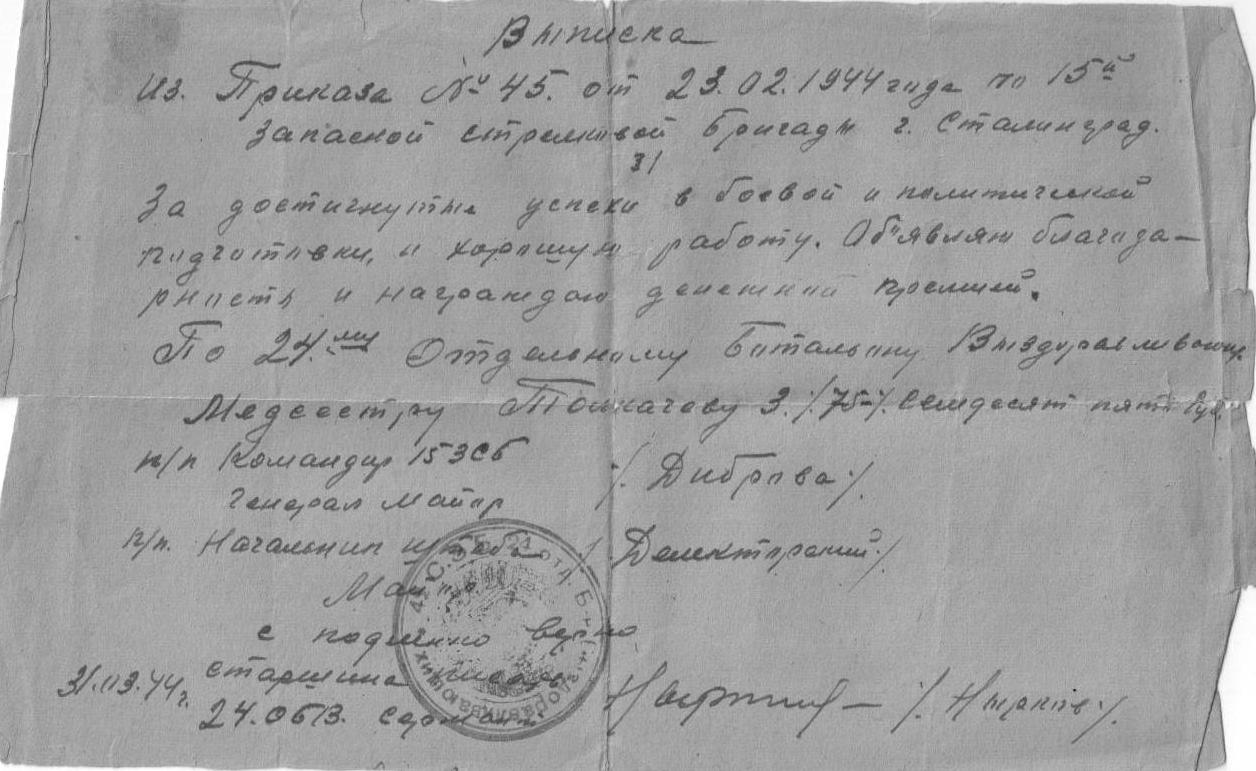 Выписка
Из. Приказа № 45. от 23.02.1944 года по 15й
Запасной стрелковой Бригады г. Сталинград.
31
За достигнутые успехи в боевой и политической
подготовки, и хорошую работу. Об"являю благода-
рность и награждаю денежной премией.
По 24.му Отдельному Батальону Выздоравливающ.
Медсестру Толкачеву З. /.75-/. Семдесят пять Руб
п/п Командир 15ЗСб /. Диброва./.
Генерал Майор
п/п. Начальник штаба /. Делекторский./
Майор
с подлинно верно
31.03.44г. старшина писарь
24.ОБВ. Сержант
24 отд. Б-н